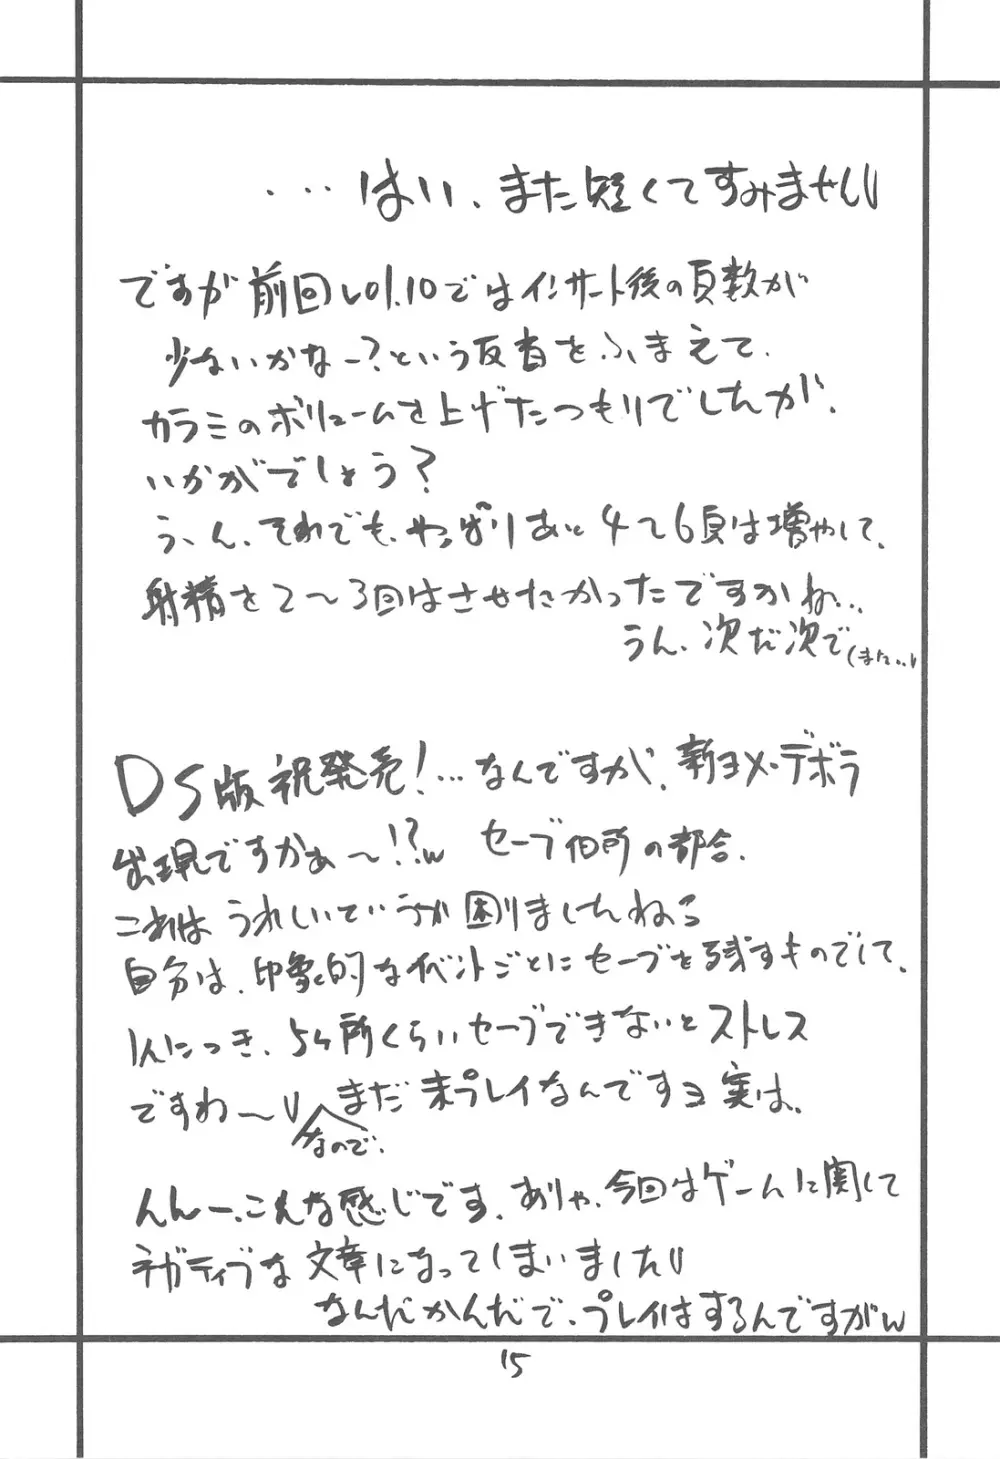 ・・・はい、また短くてすみません
ですが前回vol.10ではインサート後の頁数が
少ないかなー?という反省をふまえて、
カラミのボリュームを上げたつもりでしたが、
いかがでしょう?
う、ん、それでも、やっぱりあと4〜6頁は増やして、
射精を2〜3回はさせたかったですかね…
うん、次だ次で(また…)
DS版祝発売!…なんですが、新ヨメ・デボラ
出現ですかぁ〜!?w セーブ個所の都合、
これは うれしいていうか困りましたねこ
自分は、印象的なイベントごとにセーブを残すもので して、
1人につき、5ヶ所くらいセーブできないとストレス
ですわ〜 まだ未プレイなんですヨ実は、
なので、
んんー、こんな感じです、ありゃ、今回はゲームに関して
ネガティブな文章になってしまいました
なんだかんだで、プレイはするんですがw
15